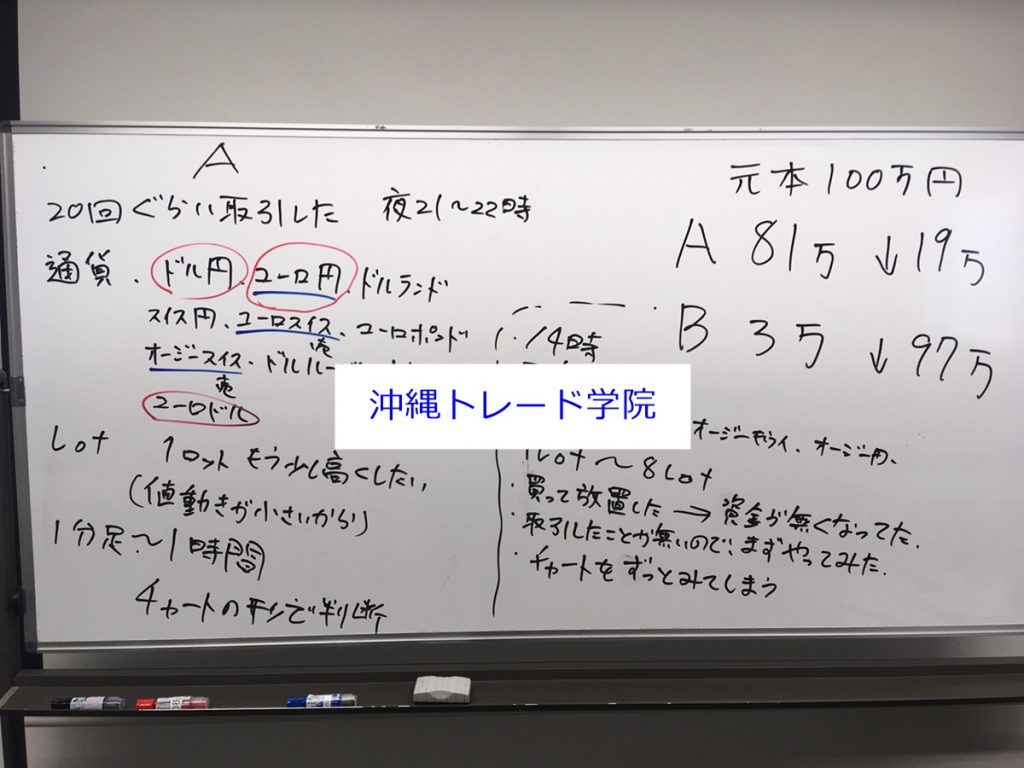 A
20回ぐらい取引した 夜21〜22時
通貨、ドル円、ユーロ円、ドルランド
スイス円、ユーロスイス、ユーロポンド
売
オージースイス・ドル
売
ユーロドル
Lot 1ロット もう少し高くしたい
(値動きが小さいから)
1分足〜1時間
チャートの形で判断
元本100万円
A 81万 ↓19万
B 3万 ↓97万
・14時
沖縄トレード学院
オージー円、
1Lot〜8Lot
・買って放置した → 資金が無くなってた.
・取引したことが無いので、まずやってみた.
・チャートをずっとみてしまう